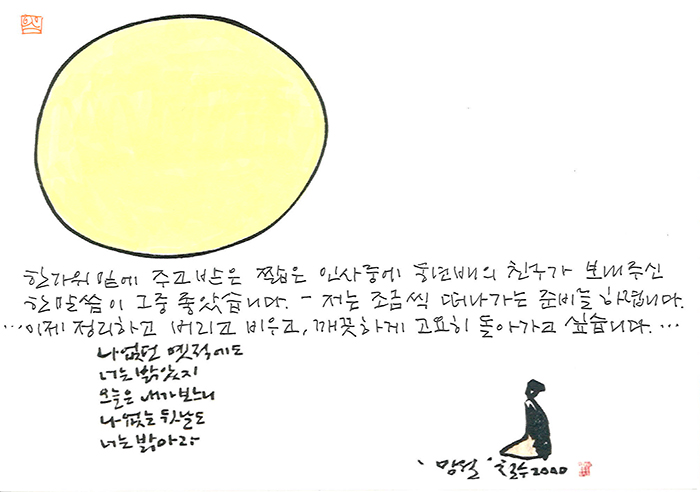 한가위 밑에 주고 받은 짧은 인사중에 친구가 보내주신
한 말씀이 그중 좋았습니다. - 저는 조금씩 떠나가는 준비를 하렵니다.
…이제 정리하고 버리고 비우고, 깨끗하게 고요히 돌아가고 싶습니다.…
나 없던 옛적에도
너는 밝았지
오늘은 내가 보느니
나 없는 뒷날도
너는 밝아라
'망월' 철수2000